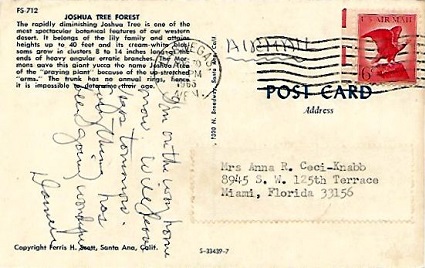 FS-712
JOSHUA TREE FOREST
The rapidly diminishing Joshua Tree is one of the
most spectacular botanical features of our western
desert. It belongs of the lily family and attains
heights up to 40 feet and its cream-white blos-
soms grow in clusters 8 to 14 inches long at the
ends of heavy angular erratic branches. The Mor-
mons gave this giant yucca the name Joshua Tree
of the "praying plant" because of the up-stretched
"arms." The trunk has no annual rings, hence
it is impossible to determine their age.
on the way home
now will
tomorrow.
has
been going
Copyright Ferris H. Scott, Santa Ana, Calif.
1220 N. Broadway, Santa Ana, Calif.
S-33439-7
PM
NEV.
AIRMAIL
U.S. AIR MAIL
6¢
POST CARD
Address
Mrs Anna R. Ceci-Knabb
8945 S. W. 125th Terrace
Miami, Florida 33156